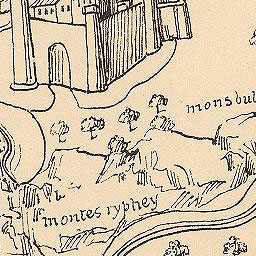 monsbul
montes ryphey